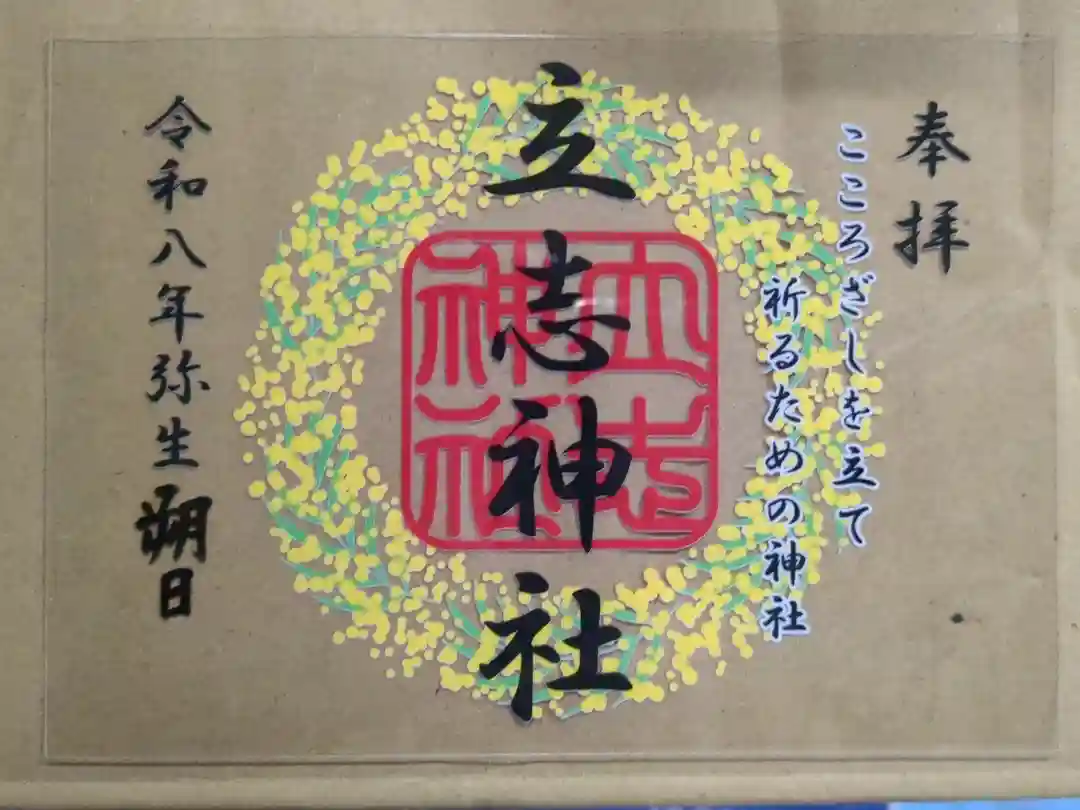 奉拝
こころざしを立て
祈るための神社
立志神社
立志神社
令和八年弥生朔日